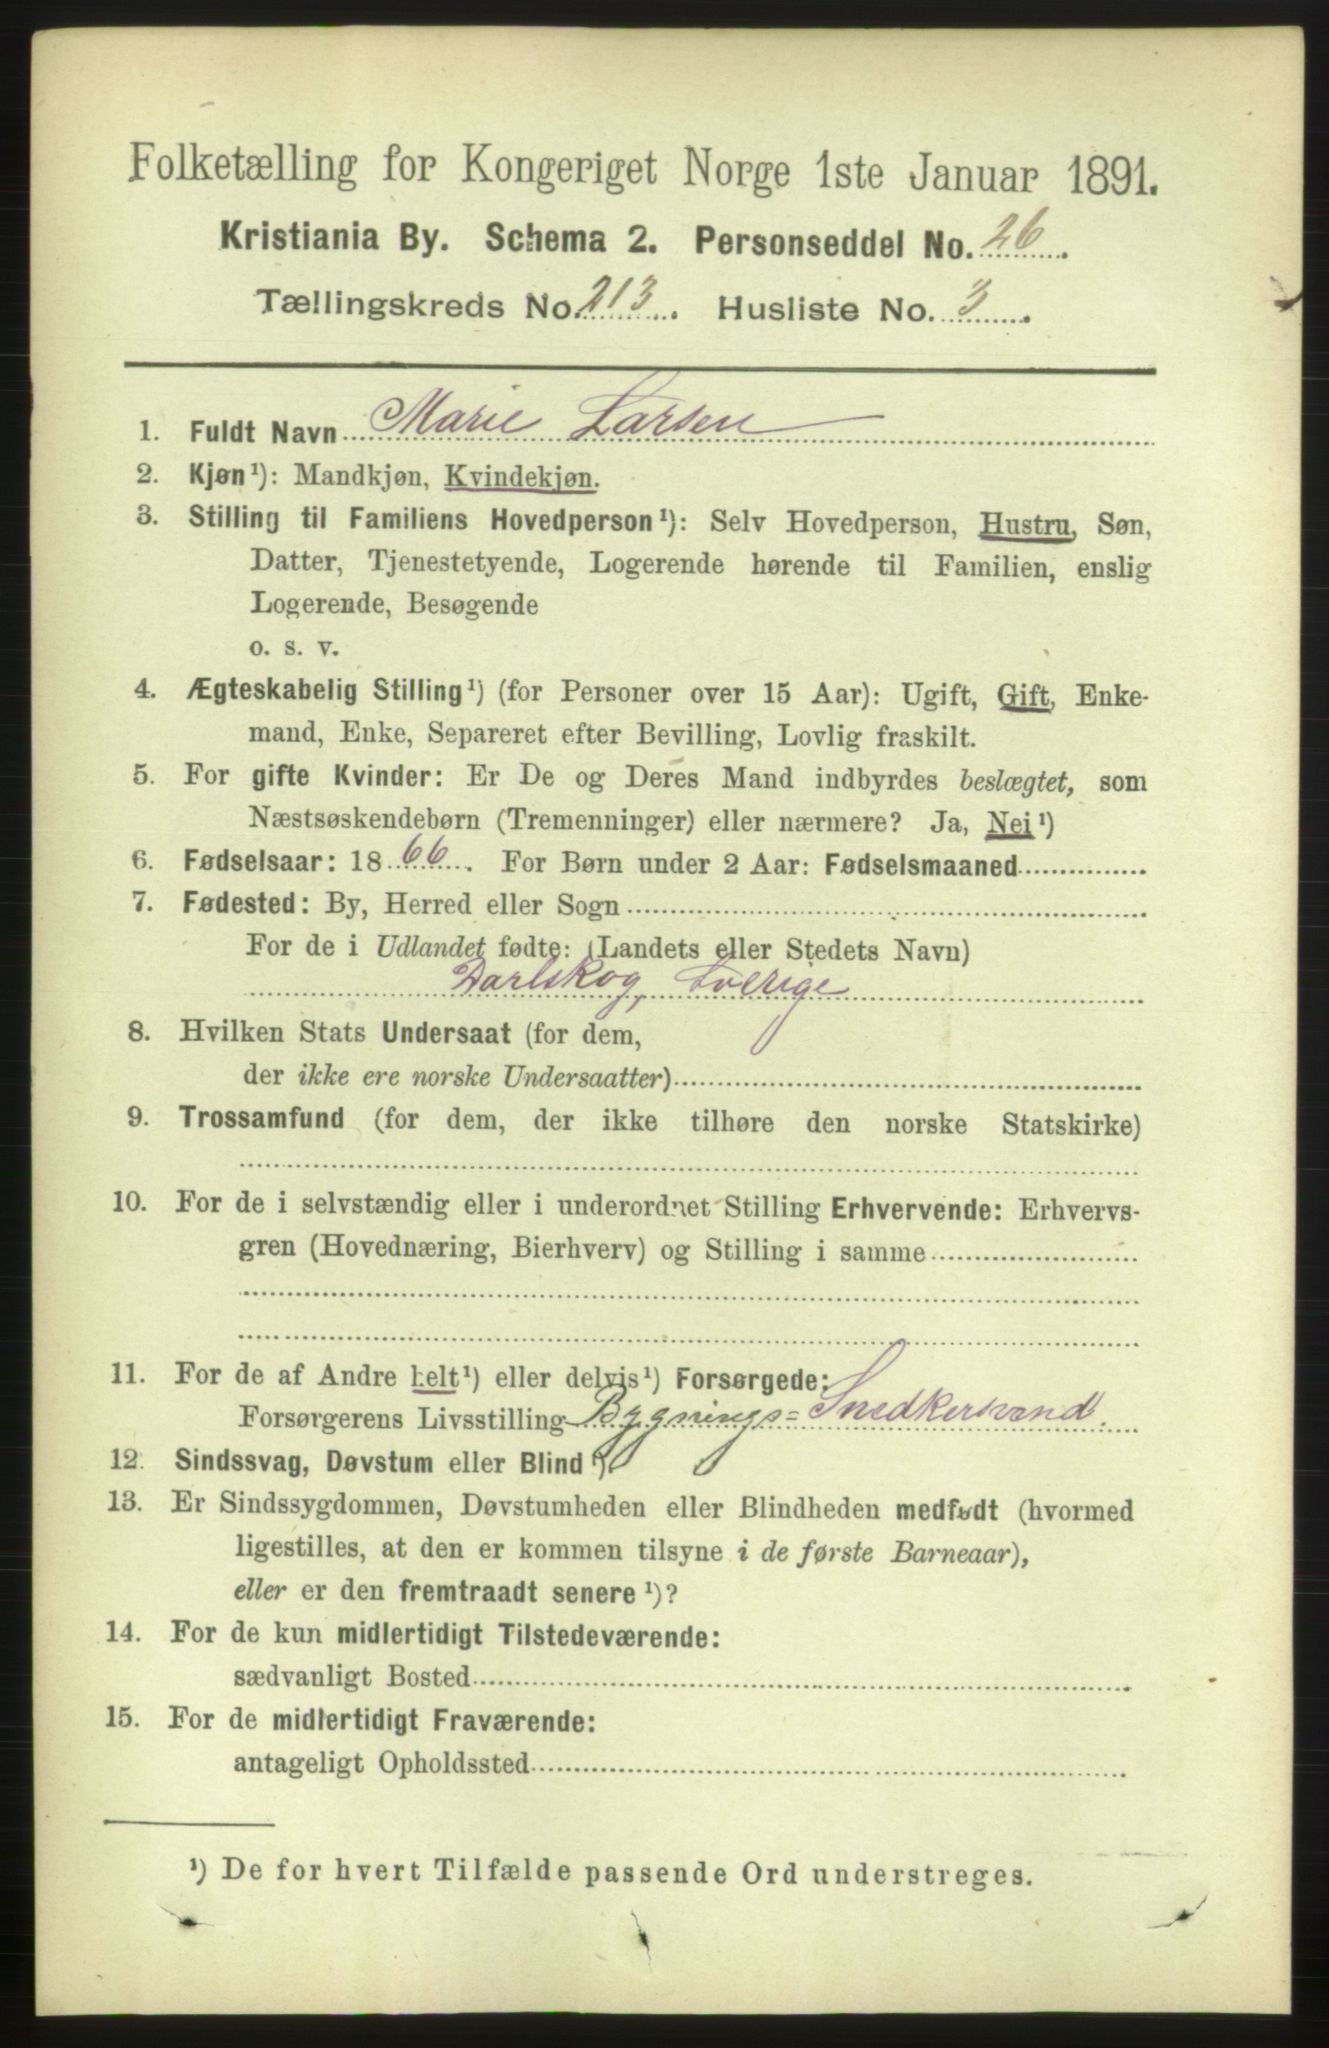 Folketælling for Kongeriget Norge 1ste Januar 1891.
Kristiania By. Schema 2. Personseddel No. 26.
Tællingskreds No. 213. Husliste No. 3.
1. Fuldt Navn Marie Larsen
2. Kjøn¹): Mandkjøn, Kvindekjøn.
3. Stilling til Familiens Hovedperson¹): Selv Hovedperson, Hustru, Søn,
Datter, Tjenestetyende, Logerende hørende til Familien, enslig
Logerende, Besøgende
o. s. v.
4. Ægteskabelig Stilling¹) (for Personer over 15 Aar): Ugift, Gift, Enke-
mand, Enke, Separeret efter Bevilling, Lovlig fraskilt.
5. For gifte Kvinder: Er De og Deres Mand indbyrdes beslægtet, som
Næstsøskendebørn (Tremenninger) eller nærmere? Ja, Nei¹)
6. Fødselsaar: 1866. For Børn under 2 Aar: Fødselsmaaned
7. Fødested: By, Herred eller Sogn
For de i Udlandet fødte: (Landets eller Stedets Navn)
Darlskog, Sverige
8. Hvilken Stats Undersaat (for dem,
der ikke ere norske Undersaatter)
9. Trossamfund (for dem, der ikke tilhøre den norske Statskirke)
10. For de i selvstændig eller i underordnet Stilling Erhvervende: Erhvervs-
gren (Hovednæring, Bierhverv) og Stilling i samme
11. For de af Andre helt¹) eller delvis¹) Forsørgede:
Forsørgerens Livsstilling Bygnings=Snedkersvend.
12. Sindssvag, Døvstum eller Blind¹).
13. Er Sindssygdommen, Døvstumheden eller Blindheden medfødt (hvormed
ligestilles, at den er kommen tilsyne i de første Barneaar),
eller er den fremtraadt senere¹)?
14. For de kun midlertidigt Tilstedeværende:
sædvanligt Bosted
15. For de midlertidigt Fraværende:
antageligt Opholdssted
¹) De for hvert Tilfælde passende Ord understreges.